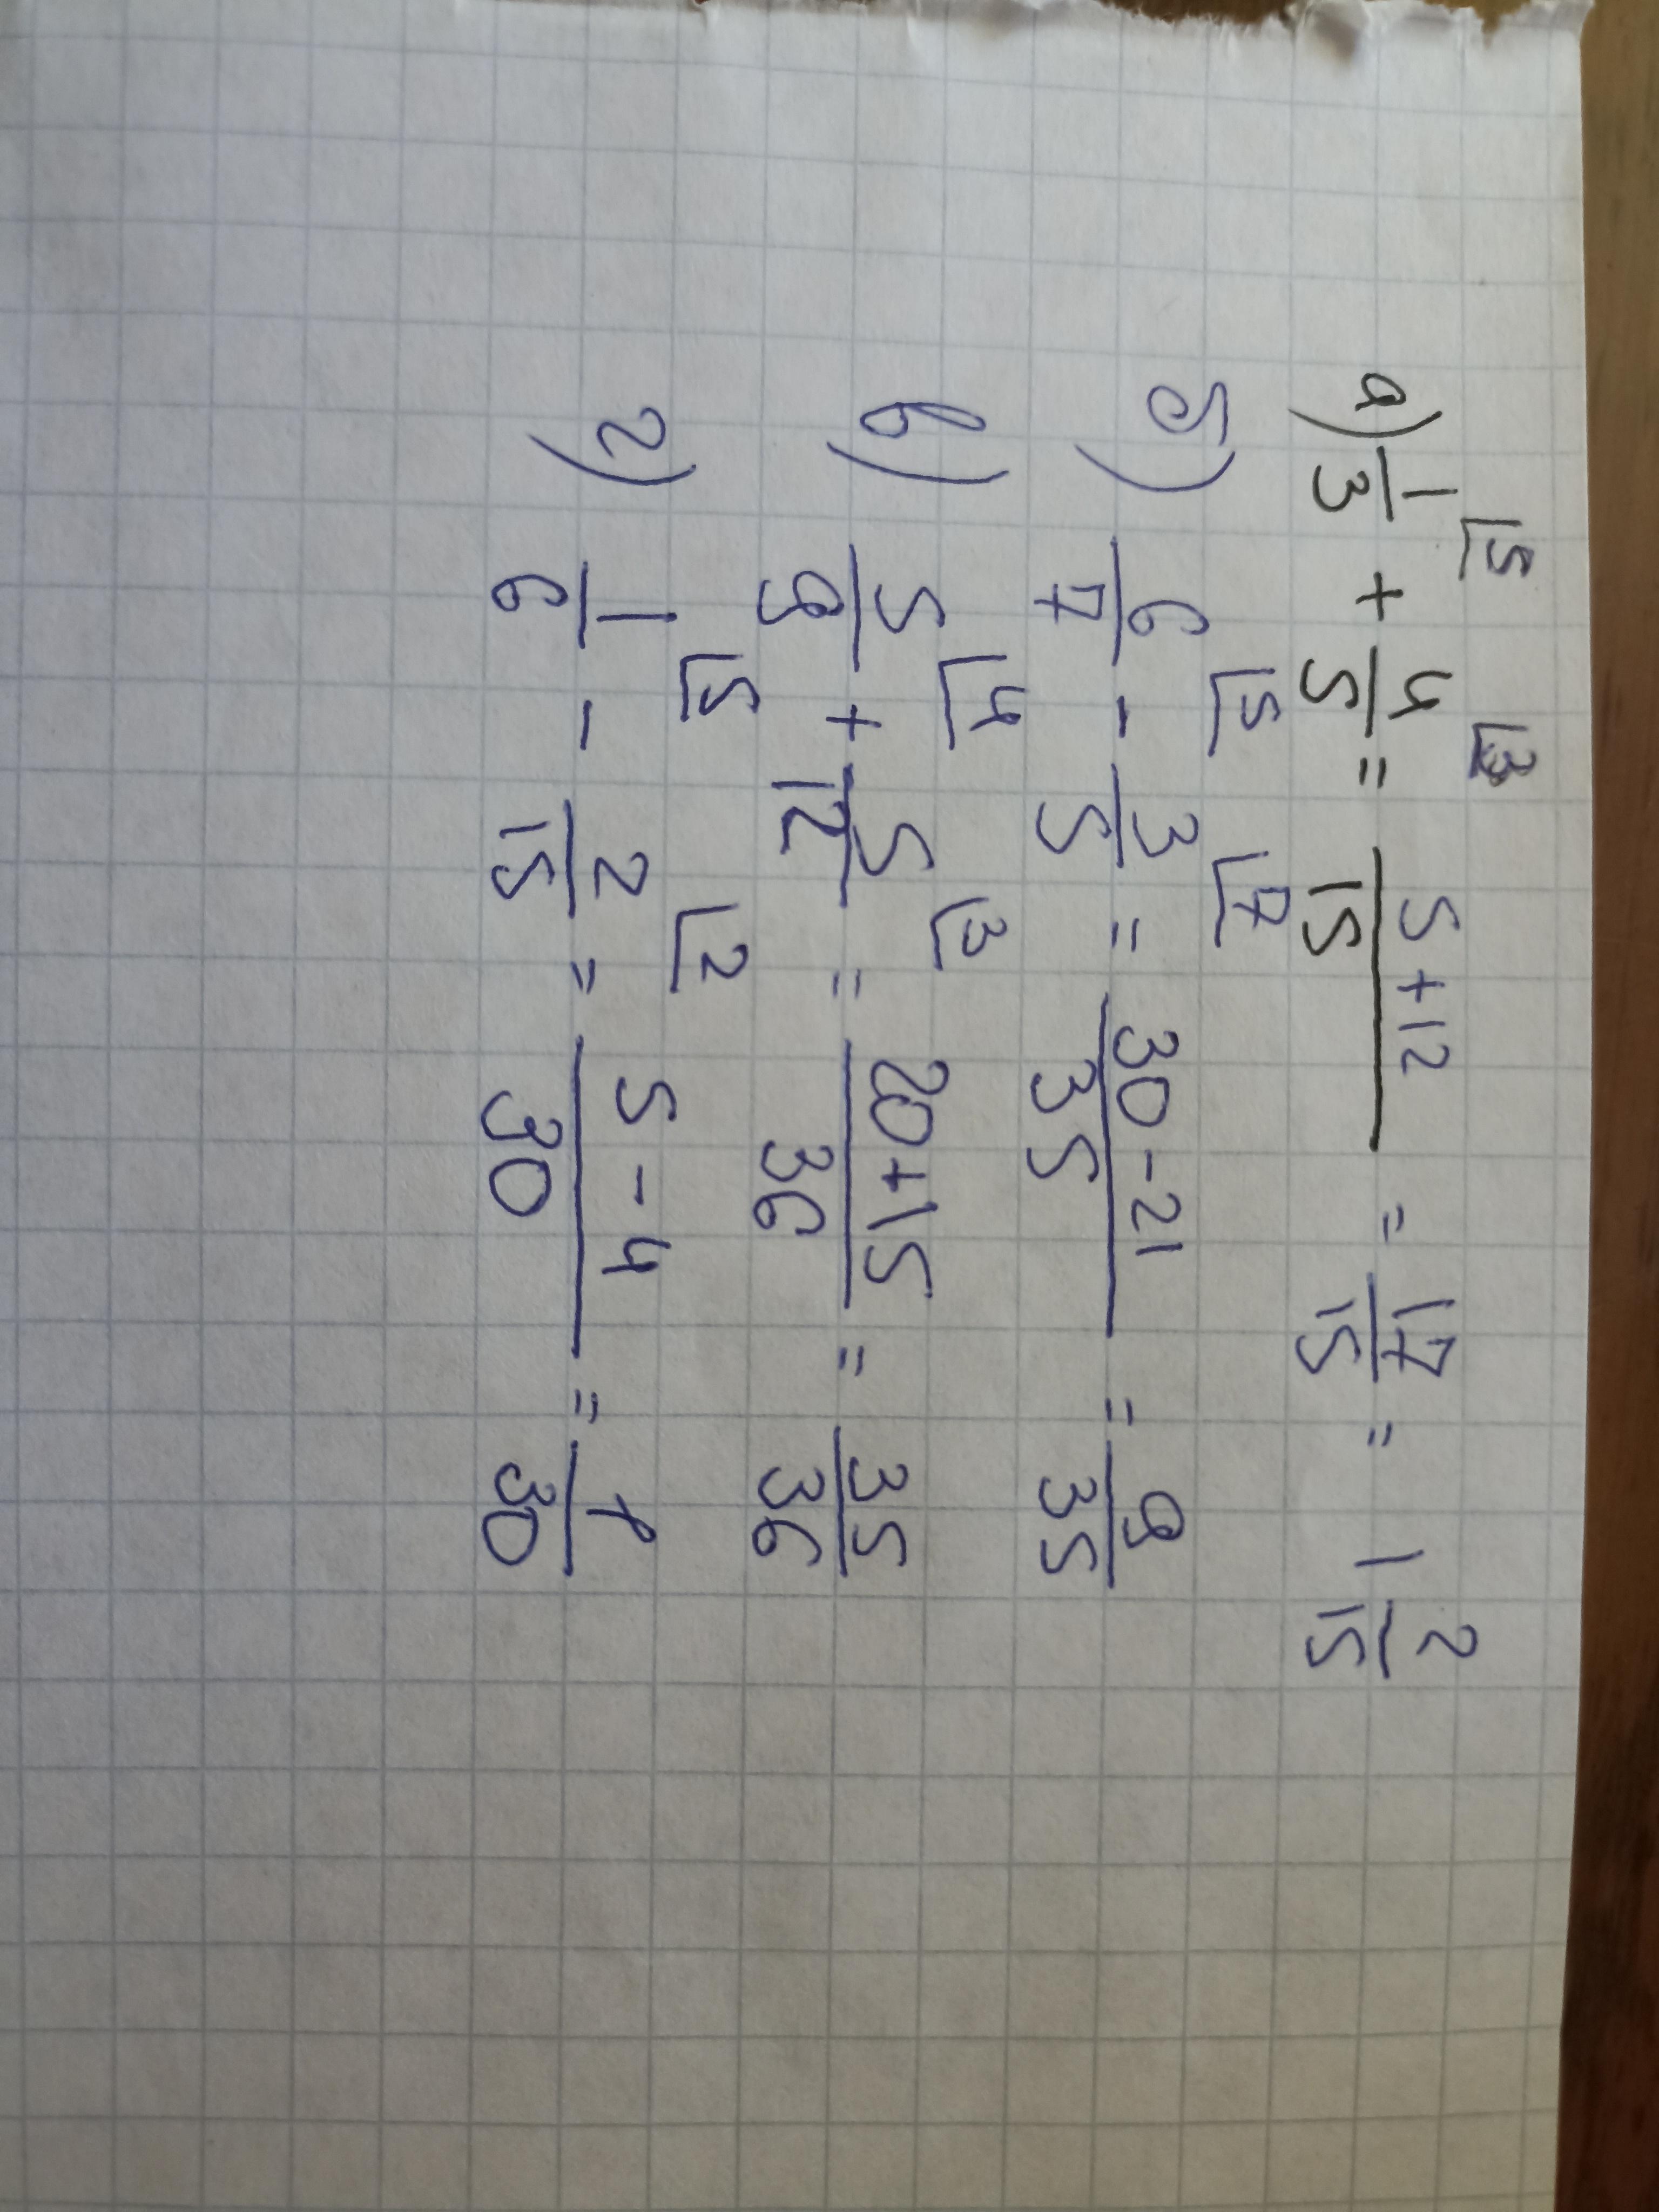 а) 1/3 ⌊5 + 4/5 ⌊3 = 5+12/15 = 17/15 = 1 2/15
б) 6/7 ⌊5 - 3/5 ⌊7 = 30-21/35 = 9/35
в) 5/9 ⌊4 + 5/12 ⌊3 = 20+15/36 = 35/36
г) 1/6 ⌊5 - 2/15 ⌊2 = 5-4/30 = 1/30